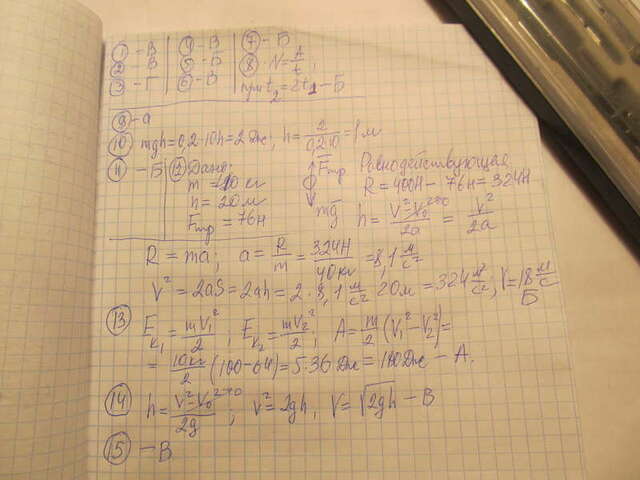 ① - В
② - В
③ - Г
④ - В
⑤ - Б
⑥ - В
⑦ - Б
⑧ N = A/t,
при t₂ = 2t₁ - Б
⑨ - а
⑩ mgh = 0,2·10h = 2 Дж; h = 2/0,2·10 = 1 м
⑪ - Б
⑫ Дано:
m = 40 кг
h = 20 м
Fтр = 76 Н
Fтр
mg
Равнодействующая
R = 400Н - 76Н = 324Н
h = (V² - V₀²→0)/2a = V²/2a
R = ma; a = R/m = 324Н/40кг = 8,1 м/с²
V² = 2aS = 2ah = 2·8,1 м/с² 20м = 324 м²/с², V = 18 м/с
Б
⑬ Eк₁ = mV₁²/2; Eк₂ = mV₂²/2; A = m/2 (V₁² - V₂²) =
= 10кг/2 (100 - 64) = 5·36 Дж = 180 Дж - А.
⑭ h = (V² - V₀²→0)/2g; V² = 2gh, V = √2gh - В
⑮ - В